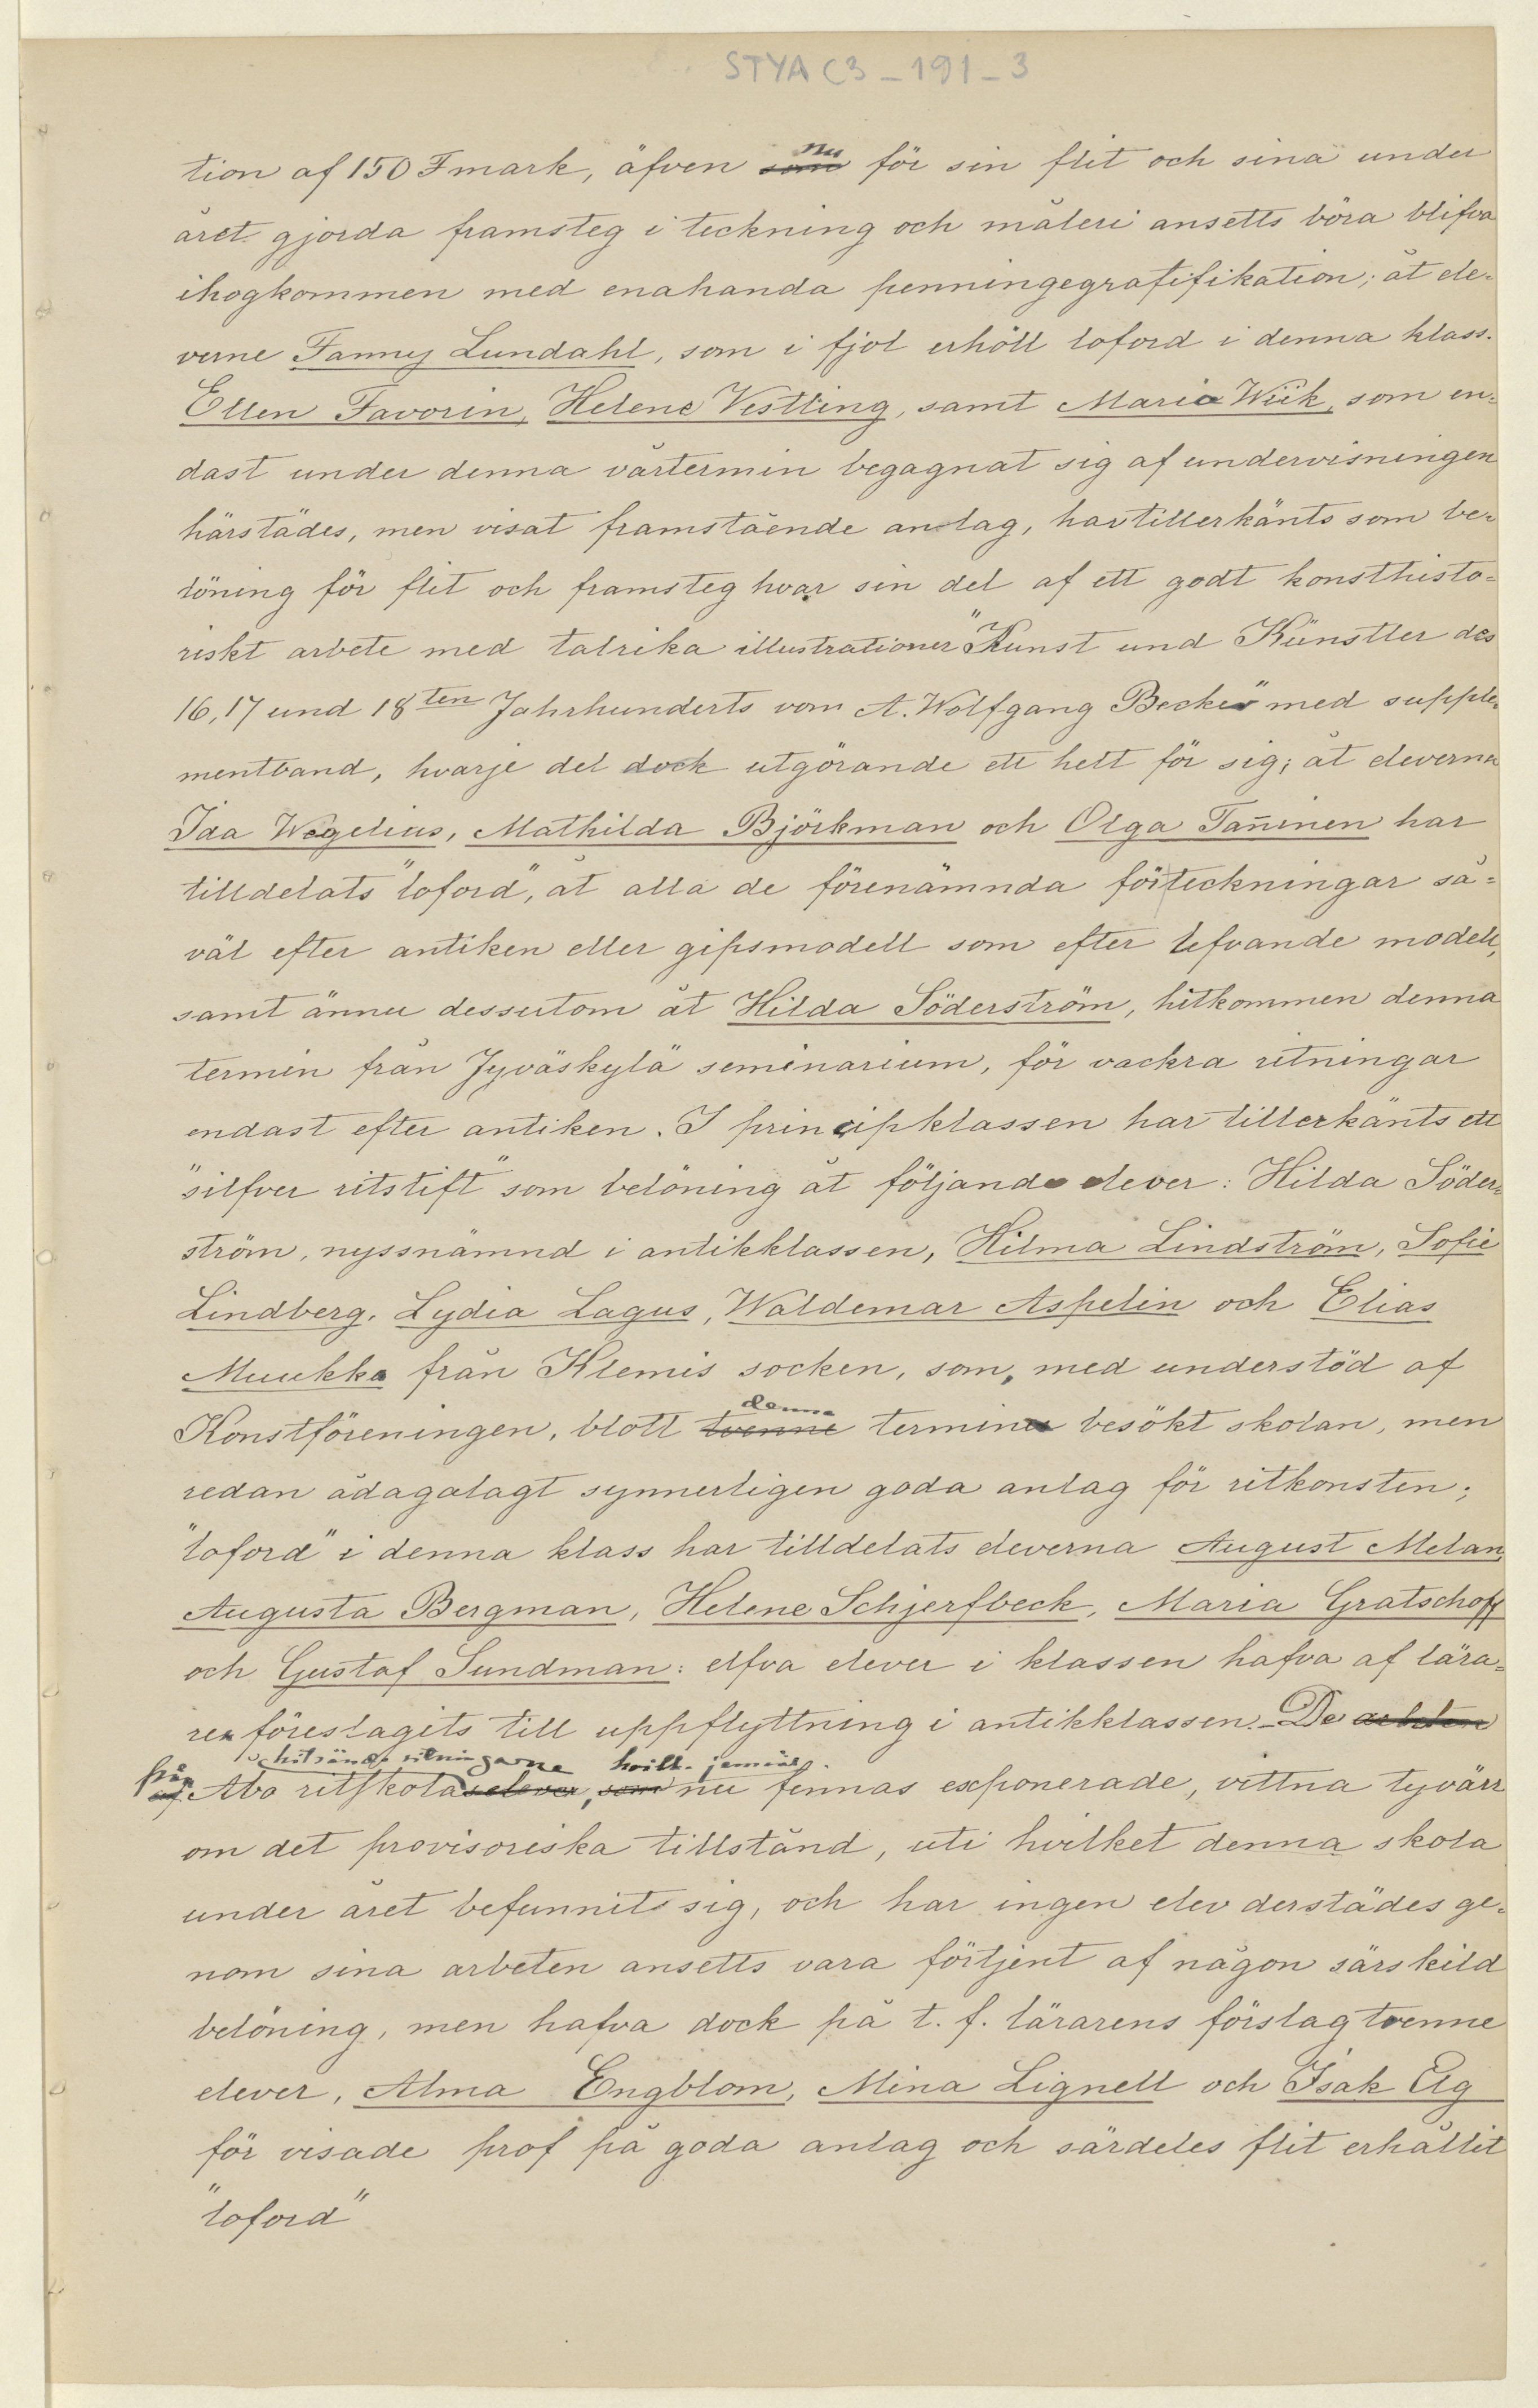 STYA C3-191-3
tion af 150 Fmark, äfven som nu för sin flit och sina under
året gjorda framsteg i teckning och måleri ansetts böra blifva
ihogkommen med enahanda penningegratifikation; åt ele-
verne Fanny Lundahl, som i fjol erhöll loford i denna klass.
Ellen Favorin, Helene Vestling, samt Maria Wiik, som en-
dast under denna vårtermin begagnat sig af undervisningen
härstädes, men visat framstående anlag, har tillerkänts som be-
löning för flit och framsteg hvar sin del af ett godt konsthisto-
riskt arbete med talrika illustrationer "Kunst und Künstler des
16, 17 und 18ten Jahrhunderts vom A. Wolfgang Becker" med supple-
mentband, hvarje del dock utgörande ett helt för sig; åt eleverna
Ida Wegelius, Mathilda Björkman och Olga Tan̄inen har
tilldelats "loford", åt alla de förenämnda för teckningar så-
väl efter antiken eller gipsmodell som efter lefvande modell,
samt ännu dessutom åt Hilda Söderström, hitkommen denna
termin från Jyväskylä seminarium, för vackra ritningar
endast efter antiken. I principklassen har tillerkänts ett
"silfver ritstift" som belöning åt följande elever: Hilda Söder-
ström, nyssnämnd i antikklassen, Hilma Lindström, Sofie
Lindberg, Lydia Lagus, Waldemar Aspelin och Elias
Muukka från Klemis socken, som, med understöd af
denna
Konstföreningen, blott tvenne termine besökt skolan, men
redan ådagalagt synnerligen goda anlag för ritkonsten;
"loford" i denna klass har tilldelats eleverna August Melan,
Augusta Bergman, Helene Schjerfbeck, Maria Gratschoff
och Gustaf Sundman: elfva elever i klassen hafva af lära-
ren föreslagits till uppflyttning i antikklassen. - De arbeten
hitsända ritningarne hvilk. jemväl
från af Åbo ritskolas elever, som nu finnas exponerade, vittna tyvärr
om det provisoriska tillstånd, uti hvilket denna skola
under året befunnits sig, och har ingen elev derstädes ge-
nom sina arbeten ansetts vara förtjent af någon särskild
belöning, men hafva dock på t. f. lärarens förslag tvenne
elever, Alma Engblom, Mina Lignell och Isak Elg
för visade prof på goda anlag och särdeles flit erhållit
"loford"